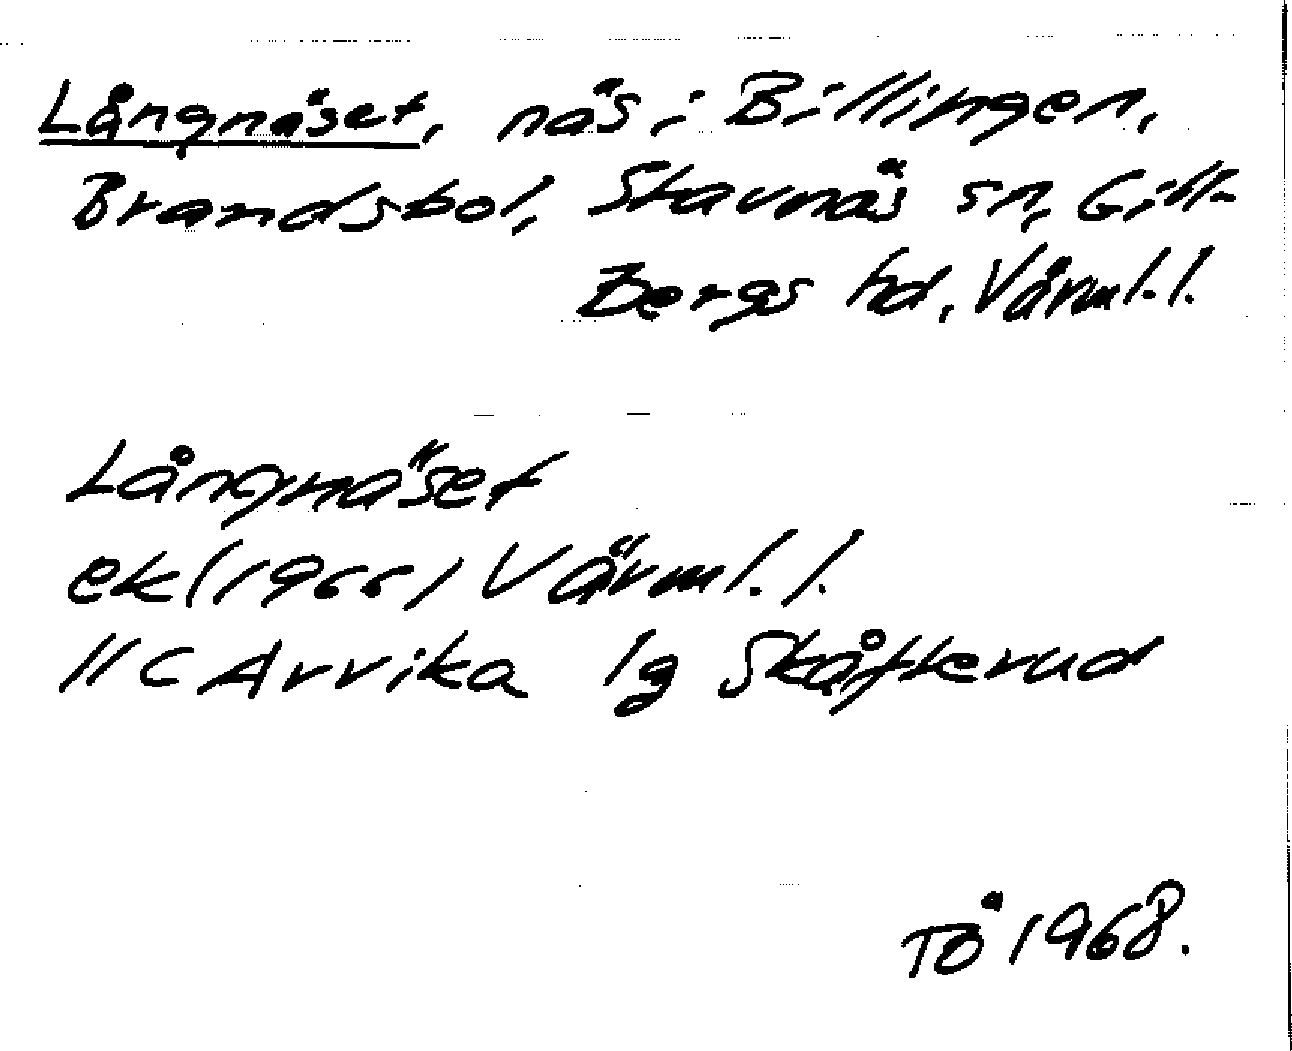 Långnäset, näs i Billingen,
Brandsbol, Stavnäs sn, Gill-
bergs hd, Värml. l.
Långnäset
ek (1966) Värml. l.
11 C Arvika 1g Skåfterud
TÖ 1968.